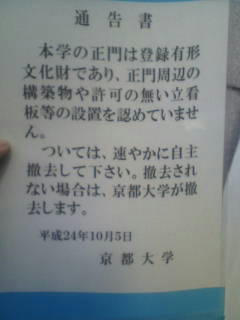 通告書
本学の正門は登録有形
文化財であり、正門周辺の
構築物や許可の無い立看
板等の設置を認めていませ
ん。
ついては、速やかに自主
撤去して下さい。撤去され
ない場合は、京都大学が撤
去します。
平成24年10月5日
京都大学